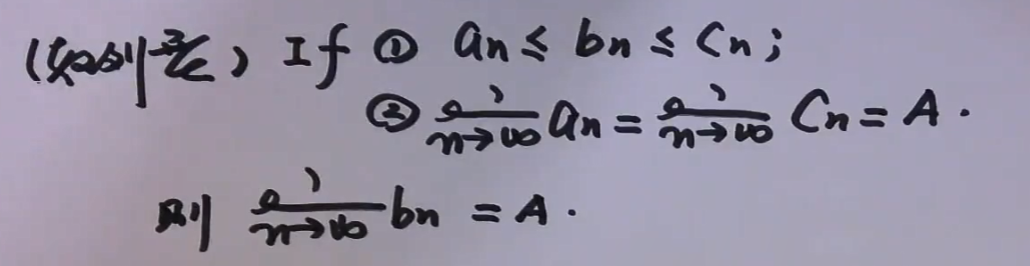 (夹逼) If ① an ≤ bn ≤ Cn;
② lim n→∞ an = lim n→∞ Cn = A.
则 lim n→∞ bn = A.